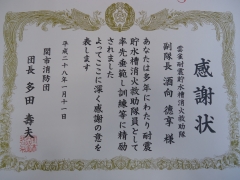 感謝状
雲雀耐震貯水槽消火救助隊
副隊長 酒向 徳享 様
あなたは多年にわたり耐震
貯水槽消火救助隊員として
率先垂範し訓練等に精励
されました
よってここに深く感謝の意を
表します
平成二十八年一月十一日
関市消防団
団長 多田 寿夫